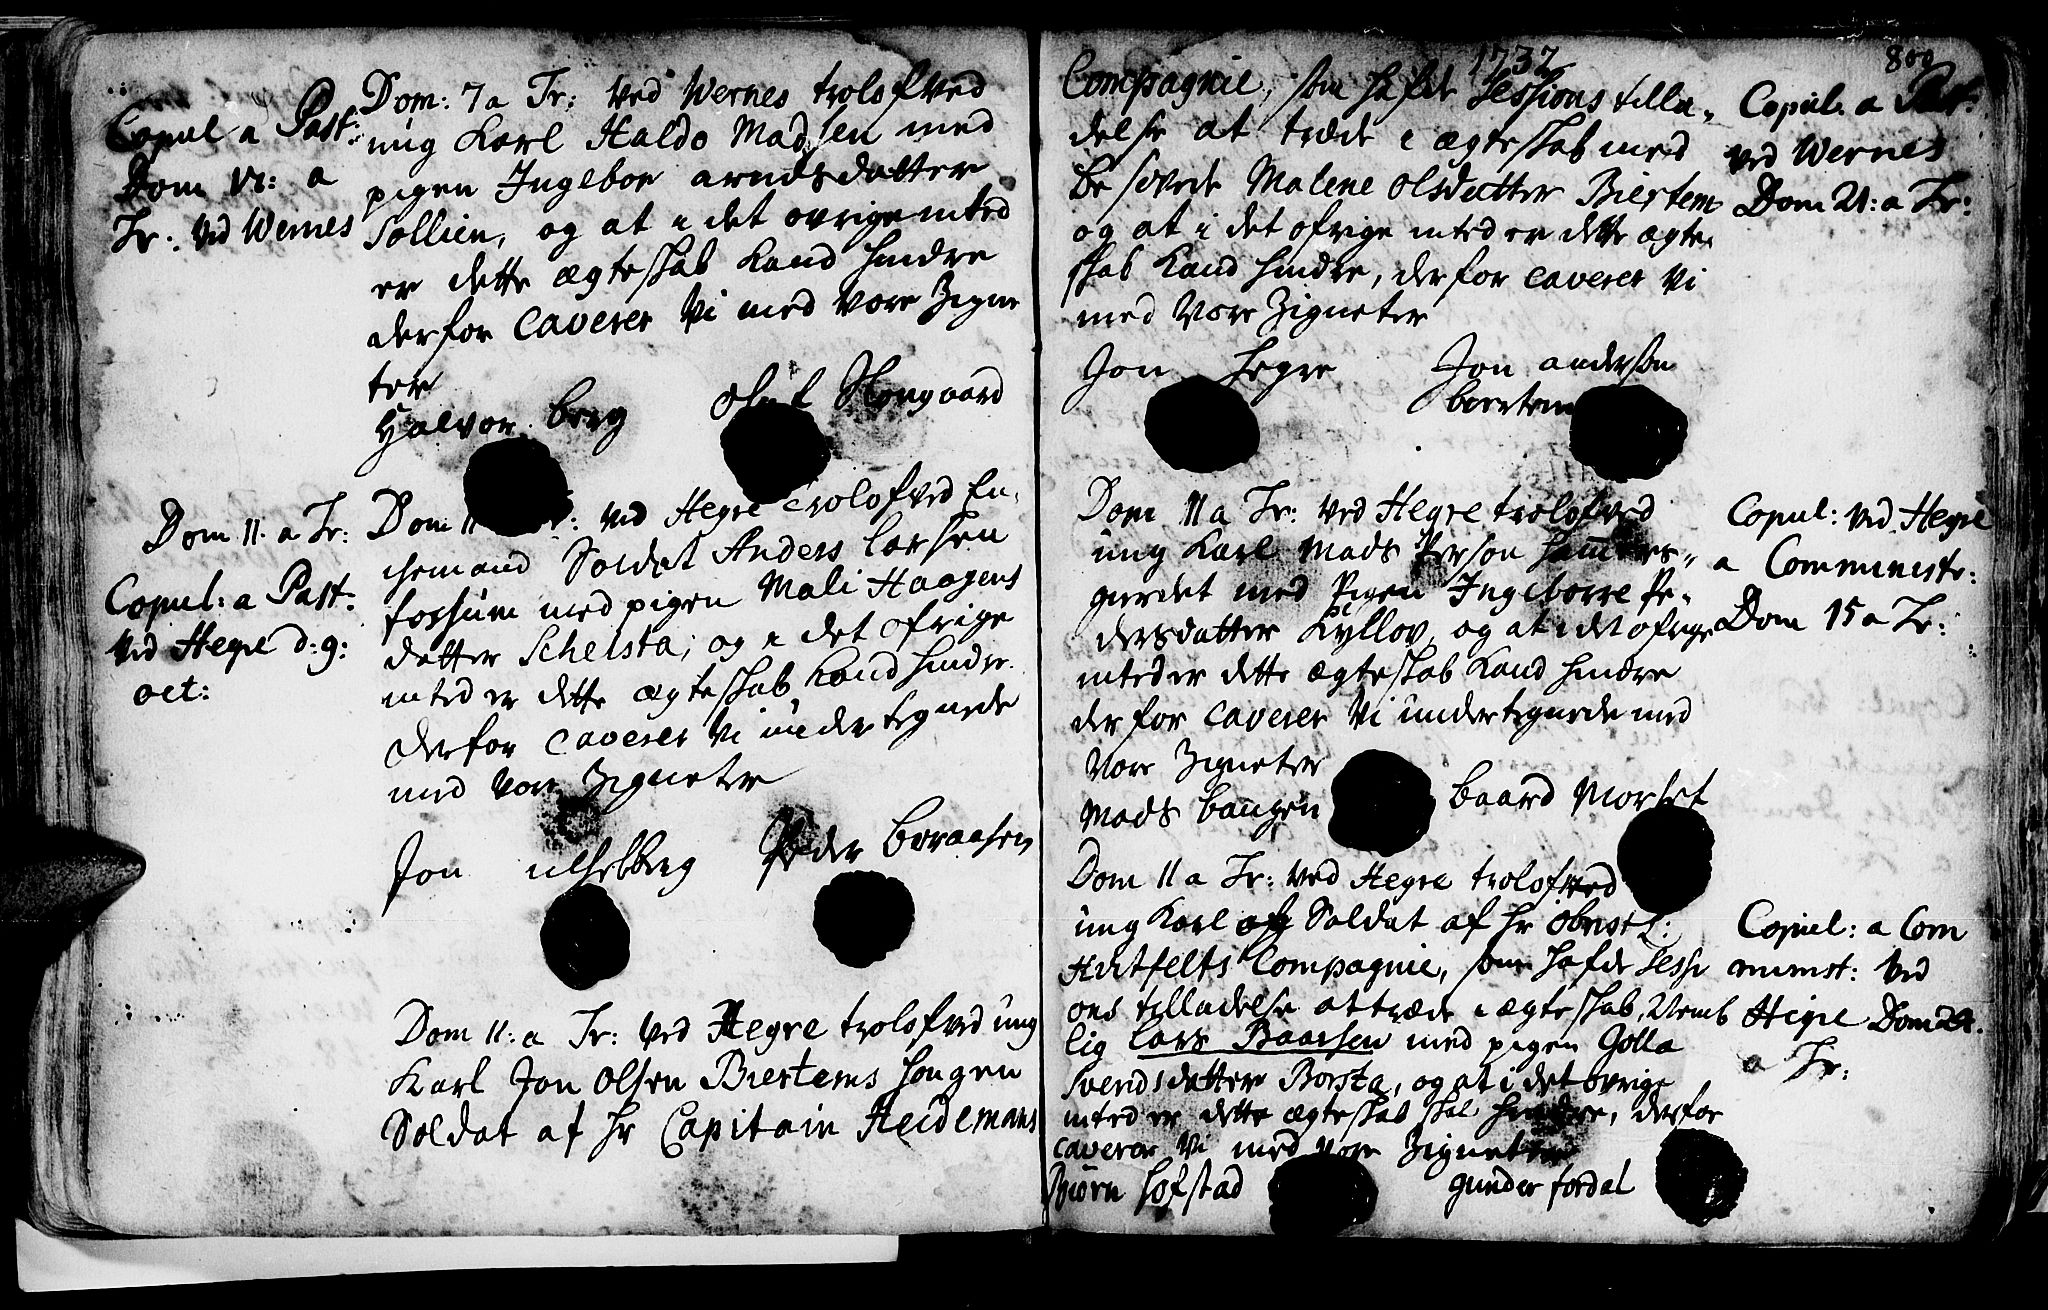 Copul a Past:
Dom VI: a
Tr: Ved Wernes
Dom: 7 a Tr: ved Wernes trolofved
ung Karl Haldo Madsen med
pigen Ingebor arndsdatter
Sollien, og at i det ovrige inted
er dette ægteskab Kand hindre
derfor caverer Vi med Vore Zigne
ter
Halvor berg Oluf
Dom 11. a Tr:
Copul: a Past:
Ved Hegre d: 9:
oct:
Dom 11 Tr: ved Hegre trolofved En,
chemand Soldat Anders Larsen
fossum med pigen Mali Haagens
datter Schelsta, og i det ofrige
inted er dette ægteskab kand hindre
derfor caverer Vi undertegnede
med Vore Zigneter
Jon ulstberg Peder Boraasen
Dom 11: a Tr: Ved Hegre trolofved ung
Karl Jon Olsen Biertems hougen
Soldat af Hr Capitain Heidemans
1737
800
Compagnie, som hafde Sessions tilla,
delse at træde i ægteskab med
besovede Malene Olsdatter Biertem
og at i det ofrige inted er dette ægte
skab Kand hindre, derfor caverer Vi
med Vore Zigneter
Jon Hegre Jon anderson
biertem
Copul. a Past:
ved Wernes
Dom 21: a Tr:
Dom 11 a Tr: ved Hegre trolofved
ung Karl Mads Person hammers,
gierdet med Pigen Ingeborre Pe,
dersdatter Kyllov, og at i det ofrige
inted er dette ægteskab Kand hindre
derfor caverer Vi undertegnede med
Vore Zigneter
Mads bangen Baard Morset
Copul: ved Hegre
a Comministr:
Dom 15 a Tr:
Dom 11 a Tr: Ved Hegre trolofved
ung Karl Soldat af Hr Obrist L:
Hvitfelts Compagnie, som hafde Sessi
ons tilladelse at træde i ægteskab, Nemb
lig Lars Baarsen med pigen Golla
Svendsdatter Borsta, og at i det ovrige
inted er dette ægteskab skal hindre, derfor
caverer Vi med vore Zigneter
Biorn Hofstad gunder fordal
Copul: a Com
minist: Ved
Hegre Dom 21.
a Tr: